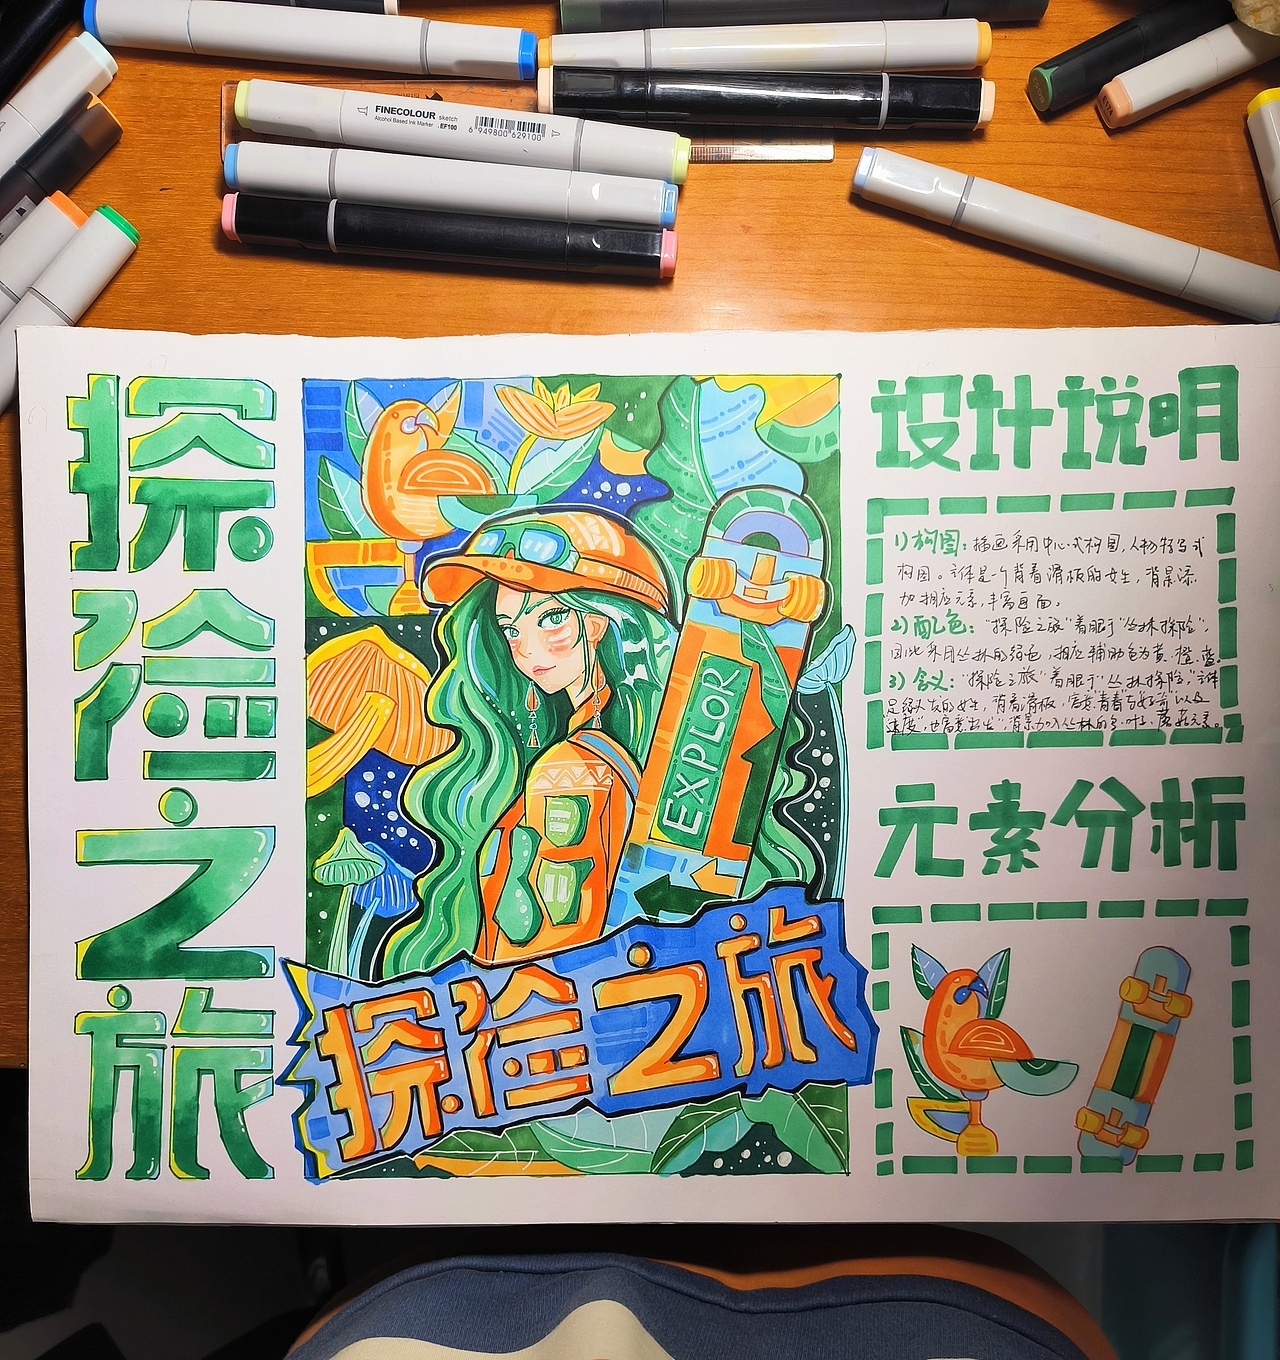 FINECOLOUR sketch
Alcohol Based Ink Marker .EF100
6 949800 629100
探险之旅
EXPLOR
探险之旅
设计说明
1)构图：插画采用中心式构图，人物特写式
构图。主体是一个背着滑板的女生，背景添
加相应元素，丰富画面。
2)配色："探险之旅"着眼于"丛林探险"，
因此采用丛林的绿色，相应辅助色为黄、橙、蓝。
3)含义："探险之旅"着眼于"丛林探险"主体
是绿头发的女生，背着滑板，寓意青春与好奇以及
速度"，也寓意出生"背景加入丛林的鸟、叶子、蘑菇元素。
元素分析